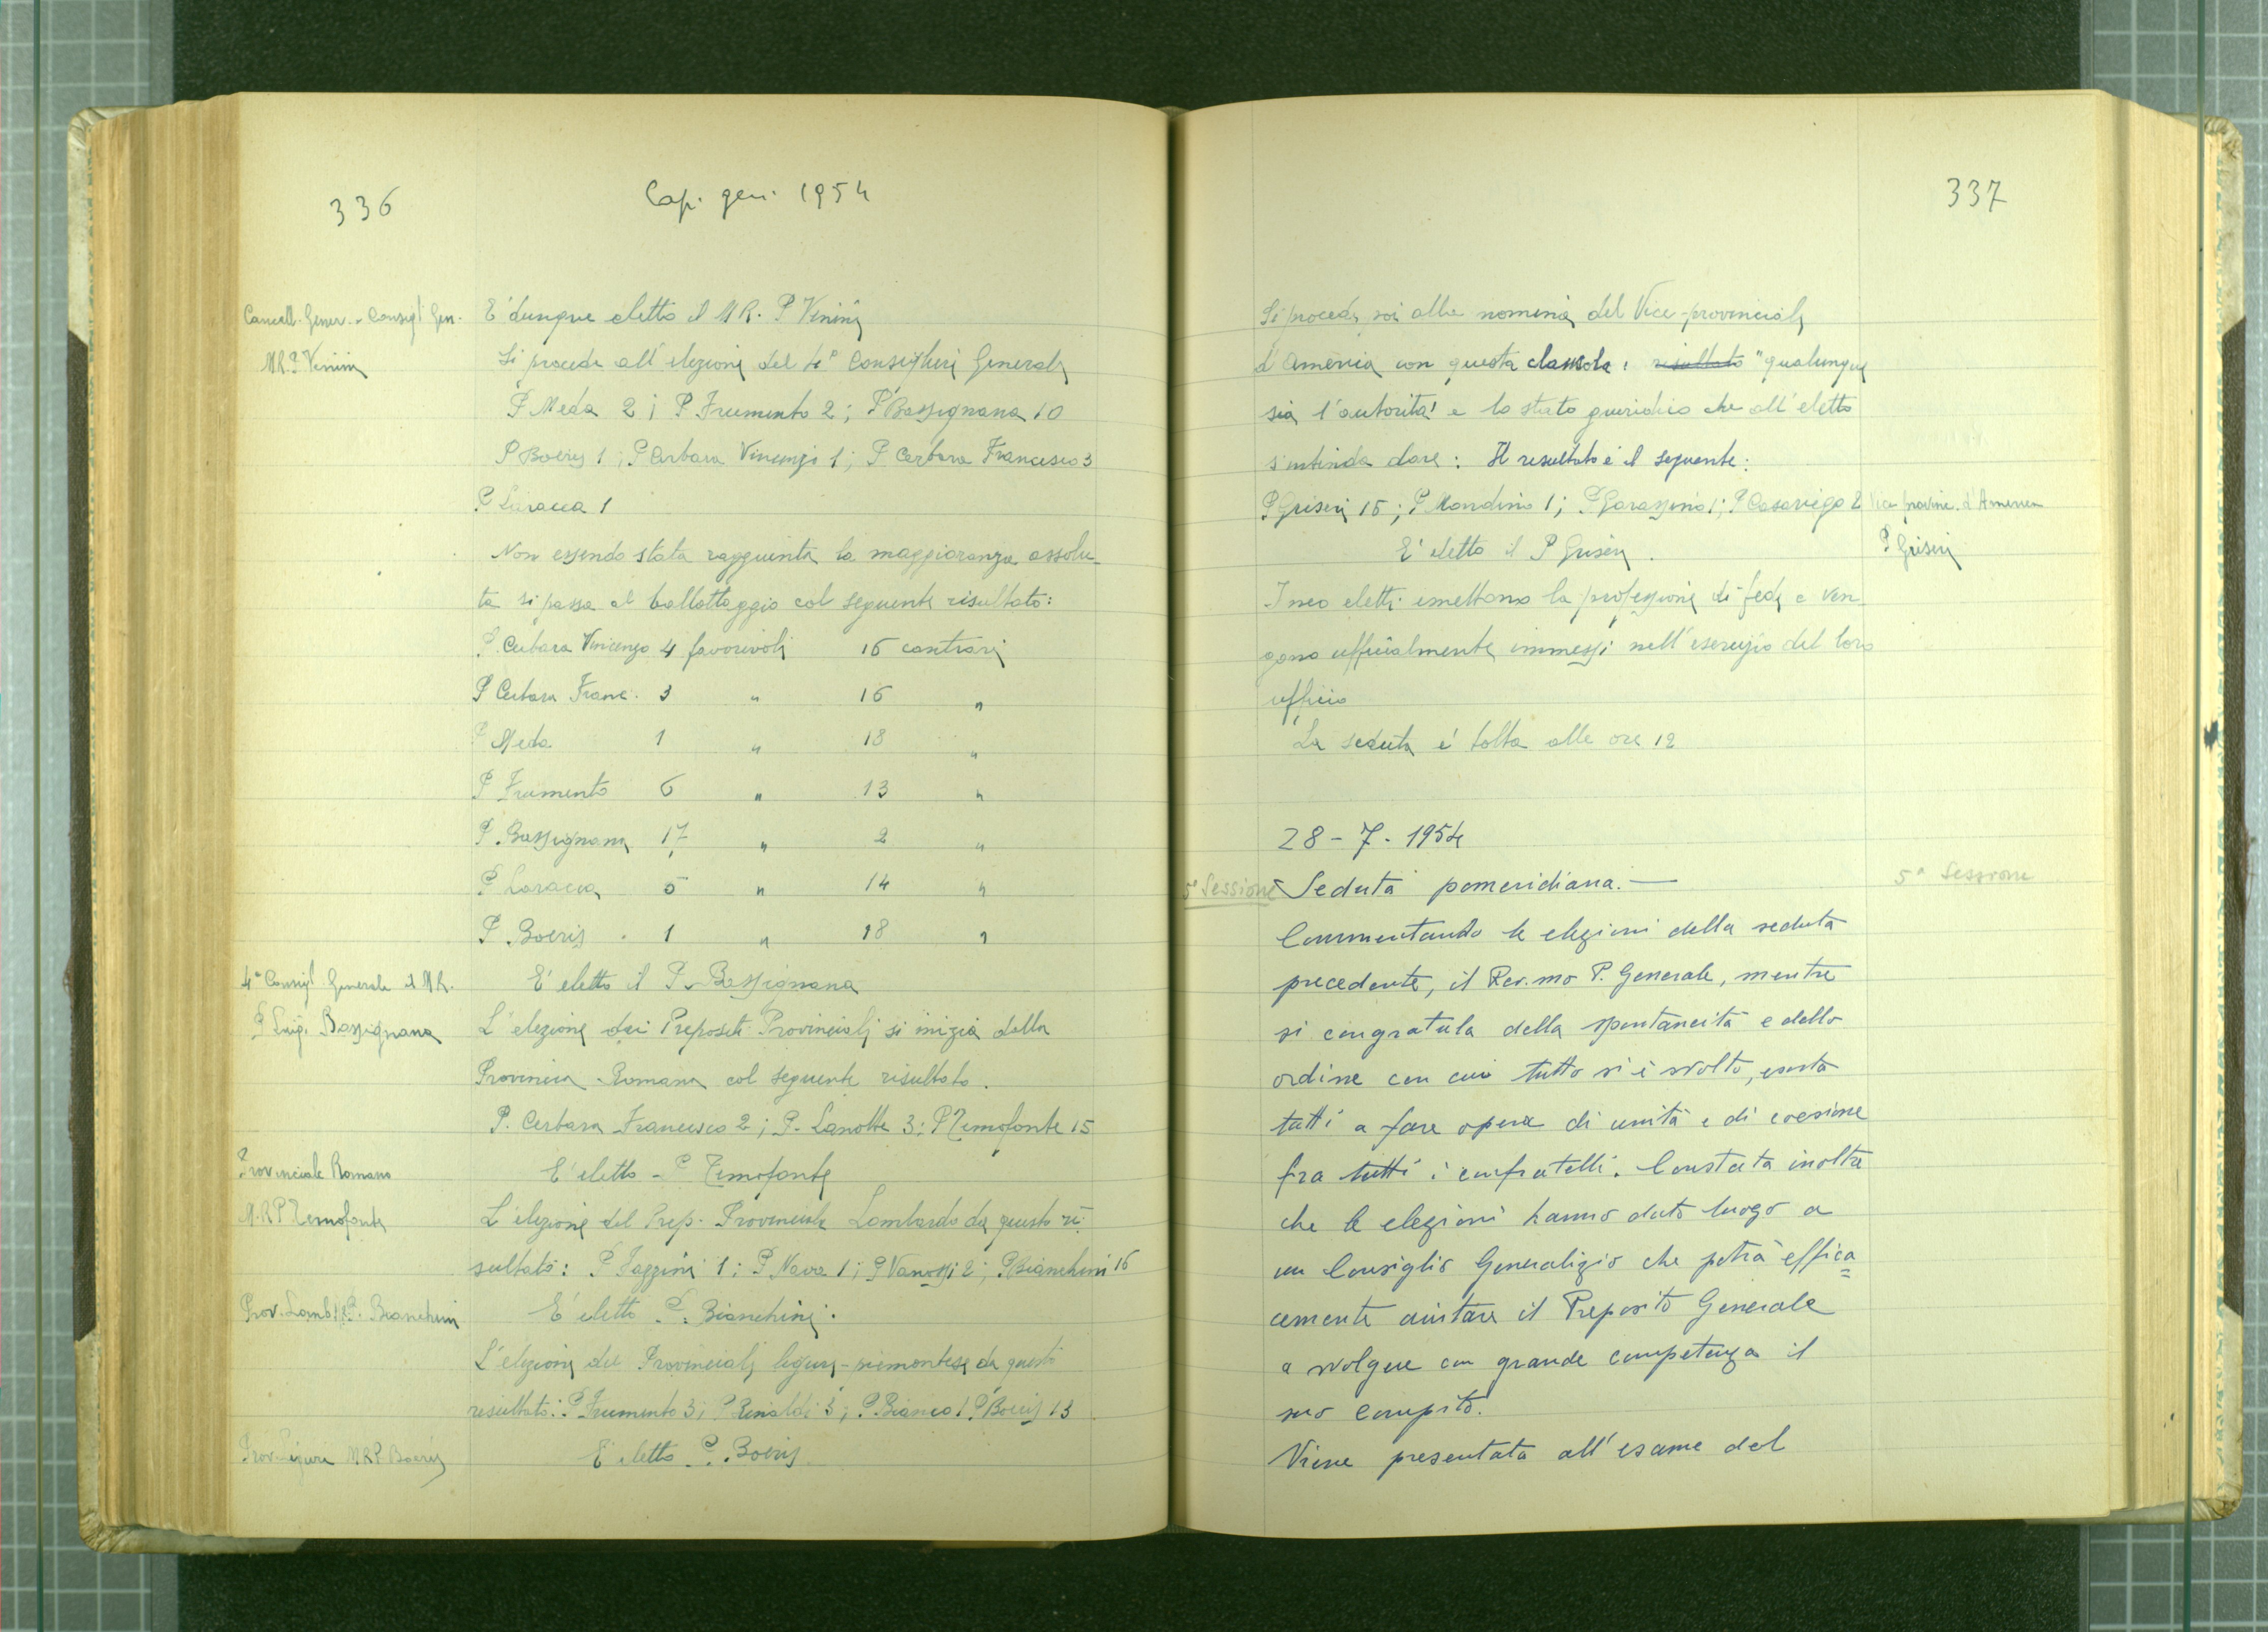 336
Cap. gen. 1954
Cancell. Gener. - Consigl. Gen.
M.R.P. Venini
E' dunque eletto il M R. P Venini
Si procede all'elezione del 4° Consigliere Generale
P Meda 2; P Frumento 2; P Bassignana 10
P Boeris 1; P Cerbara Vincenzo 1; P Cerbara Francesco 3
P Laracca 1
Non essendo stata raggiunta la maggioranza assolu-
ta si passa al ballottaggio col seguente risultato:
P. Cerbara Vincenzo 4 favorevoli 16 contrari
P Cerbara Franc. 3 " 16 "
P Meda 1 " 18 "
P Frumento 6 " 13 "
P. Bassignana 17 " 2 "
P Laracca 5 " 14 "
P. Boeris 1 " 18 "
4° Consigl. Generale il M R.
P Luigi Bassignana
E' eletto il P. Bassignana
L'elezione dei Prepositi Provinciali si inizia dalla
Provincia Romana col seguente risultato.
P. Cerbara Francesco 2; P. Lanotte 3; P Temofonte 15
Provinciale Romano
M.R P Temofonte
E' eletto - P Temofonte
L'elezione del Prep. Provinciale Lombardo da questo ri-
sultato: P Fazzini 1; P Nava 1; P Vanossi 2; P Bianchini 16
Prov. Lomb. M.R.P. Bianchini
E' eletto P. Bianchini.
L'elezione del Provinciale ligure-piemontese da questo
resultato: P Frumento 3; P Rinaldi 3; P. Bianco 1 P Boeris 13
Prov. Ligure M R P Boeris
E' eletto P. Boeris
337
Si procede poi alla nomina del Vice-provinciale
d'America con questa clausola: resultato "qualunque
sia l'autorità e lo stato giuridico che all'eletto
s'intenda dare: Il resultato è il seguente:
P Griseri 16; P Mondino 1; P Garassino 1; P Casariego 2
Vice provinc. d'America
P Griseri
E' eletto il P Griseri.
I neo eletti emettono la professione di fede e ven-
gono ufficialmente immessi nell'esercizio del loro
ufficio
La seduta è tolta alle ore 12
28-7-1954
5° Sessione
Seduta pomeridiana.—
5ª Sessione
Commentando le elezioni della seduta
precedente, il Rev.mo P. Generale, mentre
si congratula della spontaneità e dello
ordine con cui tutto si è svolto, esorta
tutti a fare opera di unità e di coesione
fra tutti i confratelli. Constata inoltre
che le elezioni hanno dato luogo a
un Consiglio Generalizio che potrà effica=
cemente aiutare il Preposito Generale
a svolgere con grande competenza il
suo compito.
Viene presentata all'esame del